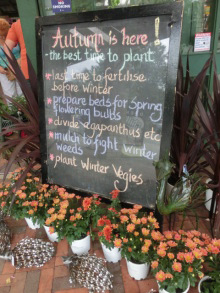 Autumn is here!
- the best time to plant
* last time to fertilise
before Winter
* prepare beds for Spring
flowering bulbs
* divide agapanthus etc
* mulch to fight winter
weeds
* plant Winter Vegies